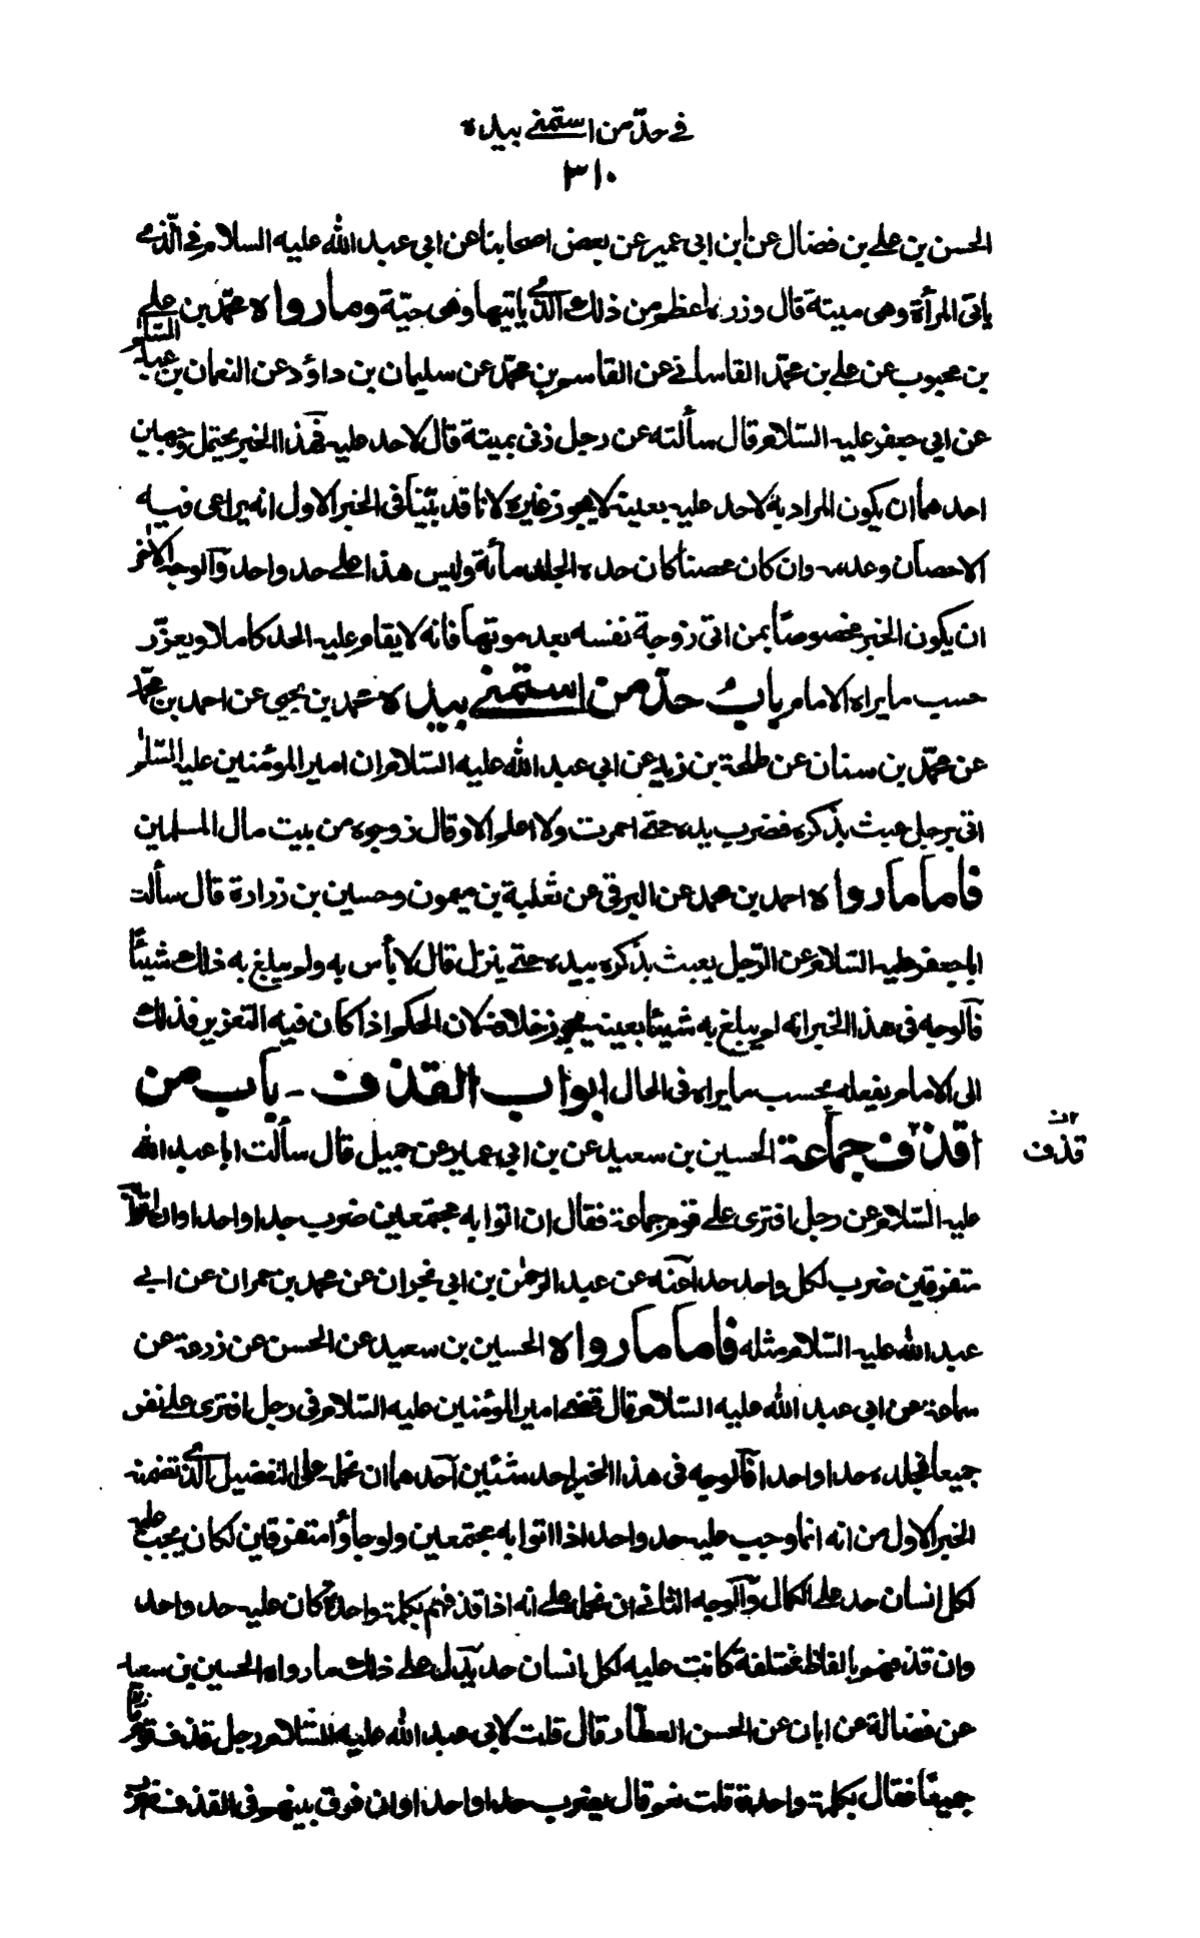 في حدّ من استمنى بيده
٣١٠
الحسن بن علي بن فضال عن ابن ابي عمير عن بعض اصحابنا عن ابي عبد الله عليه السلام في الّذي
ياتي المرأة وهي ميتة قال وزره اعظم من ذلك الّذي ياتيها وهي حيّة وما رواه محمّد بن علي
بن محبوب عن علي بن محمّد القاساني عن القاسم بن محمّد عن سليمان بن داؤد عن النعمان بن عبد السّلم
عن ابي جعفر عليه السّلام قال سألته عن رجل زنى بميتة قال لا حد عليه فهذا الخبر يحتمل وجهين
احدهما ان يكون المراد به لا حد عليه بعينه لا يجوز غيره لانا قد بيّنا في الخبر الاول انه يراعى فيه
الاحصان وعدمه وان كان محصنا كان حده الجلد مأة وليس هذا على حد واحد والوجه الاخر
ان يكون الخبر مخصوصًا بمن اتى زوجة نفسه بعد موتها فانه لا يقام عليه الحد كاملا ويعزّر
حسب ما يراه الامام باب حدّ من استمنى بيده محمد بن يحيى عن احمد بن محمّد
عن محمّد بن سنان عن طلحة بن زيد عن ابي عبد الله عليه السّلام ان امير المؤمنين عليه السّلم
اتى برجل عبث بذكره فضرب يده حتى احمرت ولا اعلم الا وقال زوجوه من بيت مال المسلمين
فاما ما رواه احمد بن محمد عن البرقي عن ثعلبة بن ميمون وحسين بن زرارة قال سألت
ابا جعفر عليه السّلام عن الرّجل يعبث بذكره بيده حتى ينزل قال لا بأس به ولم يبلغ به ذلك شيئًا
فالوجه في هذا الخبر انه لم يبلغ به شيئا بعينه يجوز خلافه لان الحكم اذا كان فيه التعزير فذلك
الى الامام يفعله بحسب ما يراه في الحال ابواب القذف - باب من
اقذف جماعة الحسين بن سعيد عن بن ابي عمير عن جميل قال سألت ابا عبد الله
قذف
عليه السّلام عن رجل افترى على قوم جماعة فقال ان اتوا به مجتمعين ضرب حدا واحدا وان اتوا به
متفرقين ضرب لكل واحد حدا عنه عن عبد الرحمٰن بن ابي نجران عن محمد بن حمران عن ابي
عبد الله عليه السّلام مثله فاما ما رواه الحسين بن سعيد عن الحسن عن زرعة عن
سماعة عن ابي عبد الله عليه السّلام قال قضى امير المؤمنين عليه السّلام في رجل افترى على نفر
جميعا فجلده حدا واحدا فالوجه في هذا الخبر احد شئين احدهما ان نحمله على التفصيل الّذي تضمنه
الخبر الاول من انه انما وجب عليه حد واحد اذا اتوا به مجتمعين ولو جاؤا متفرقين لكان يجب عليه
لكل انسان حد على الكمال والوجه الثاني ان نحمله على انه اذا قذفهم بكلمة واحدة كان عليه حد واحد
وان قذفهم بالفاظ مختلفة كانت عليه لكل انسان حد يدل على ذلك ما رواه الحسين بن سعيد
عن فضالة عن ابان عن الحسن العطّار قال قلت لابي عبد الله عليه السّلام رجل قذف قوما
جميعًا فقال بكلمة واحدة قلت نعم قال يضرب حدا واحدا وان فرق بينهم في القذف ضرب